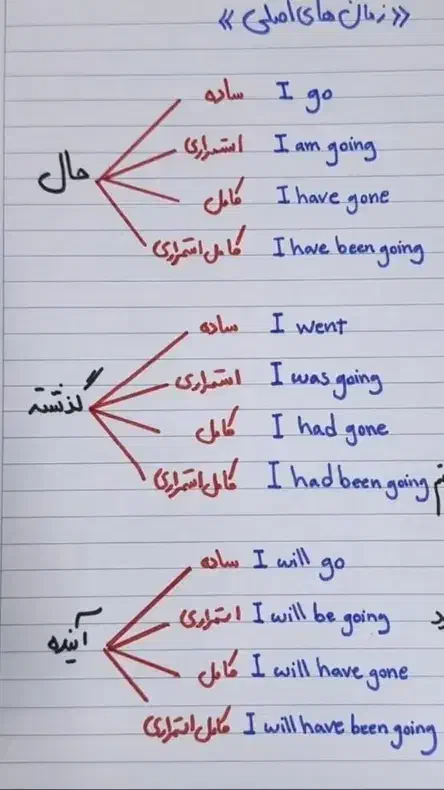 «زمان های اصلی»
ساده I go
استمراری I am going
حال
کامل I have gone
کامل استمراری I have been going
ساده I went
استمراری I was going
گذشته
کامل I had gone
کامل استمراری I had been going
ساده I will go
استمراری I will be going
آینده
کامل I will have gone
کامل استمراری I will have been going